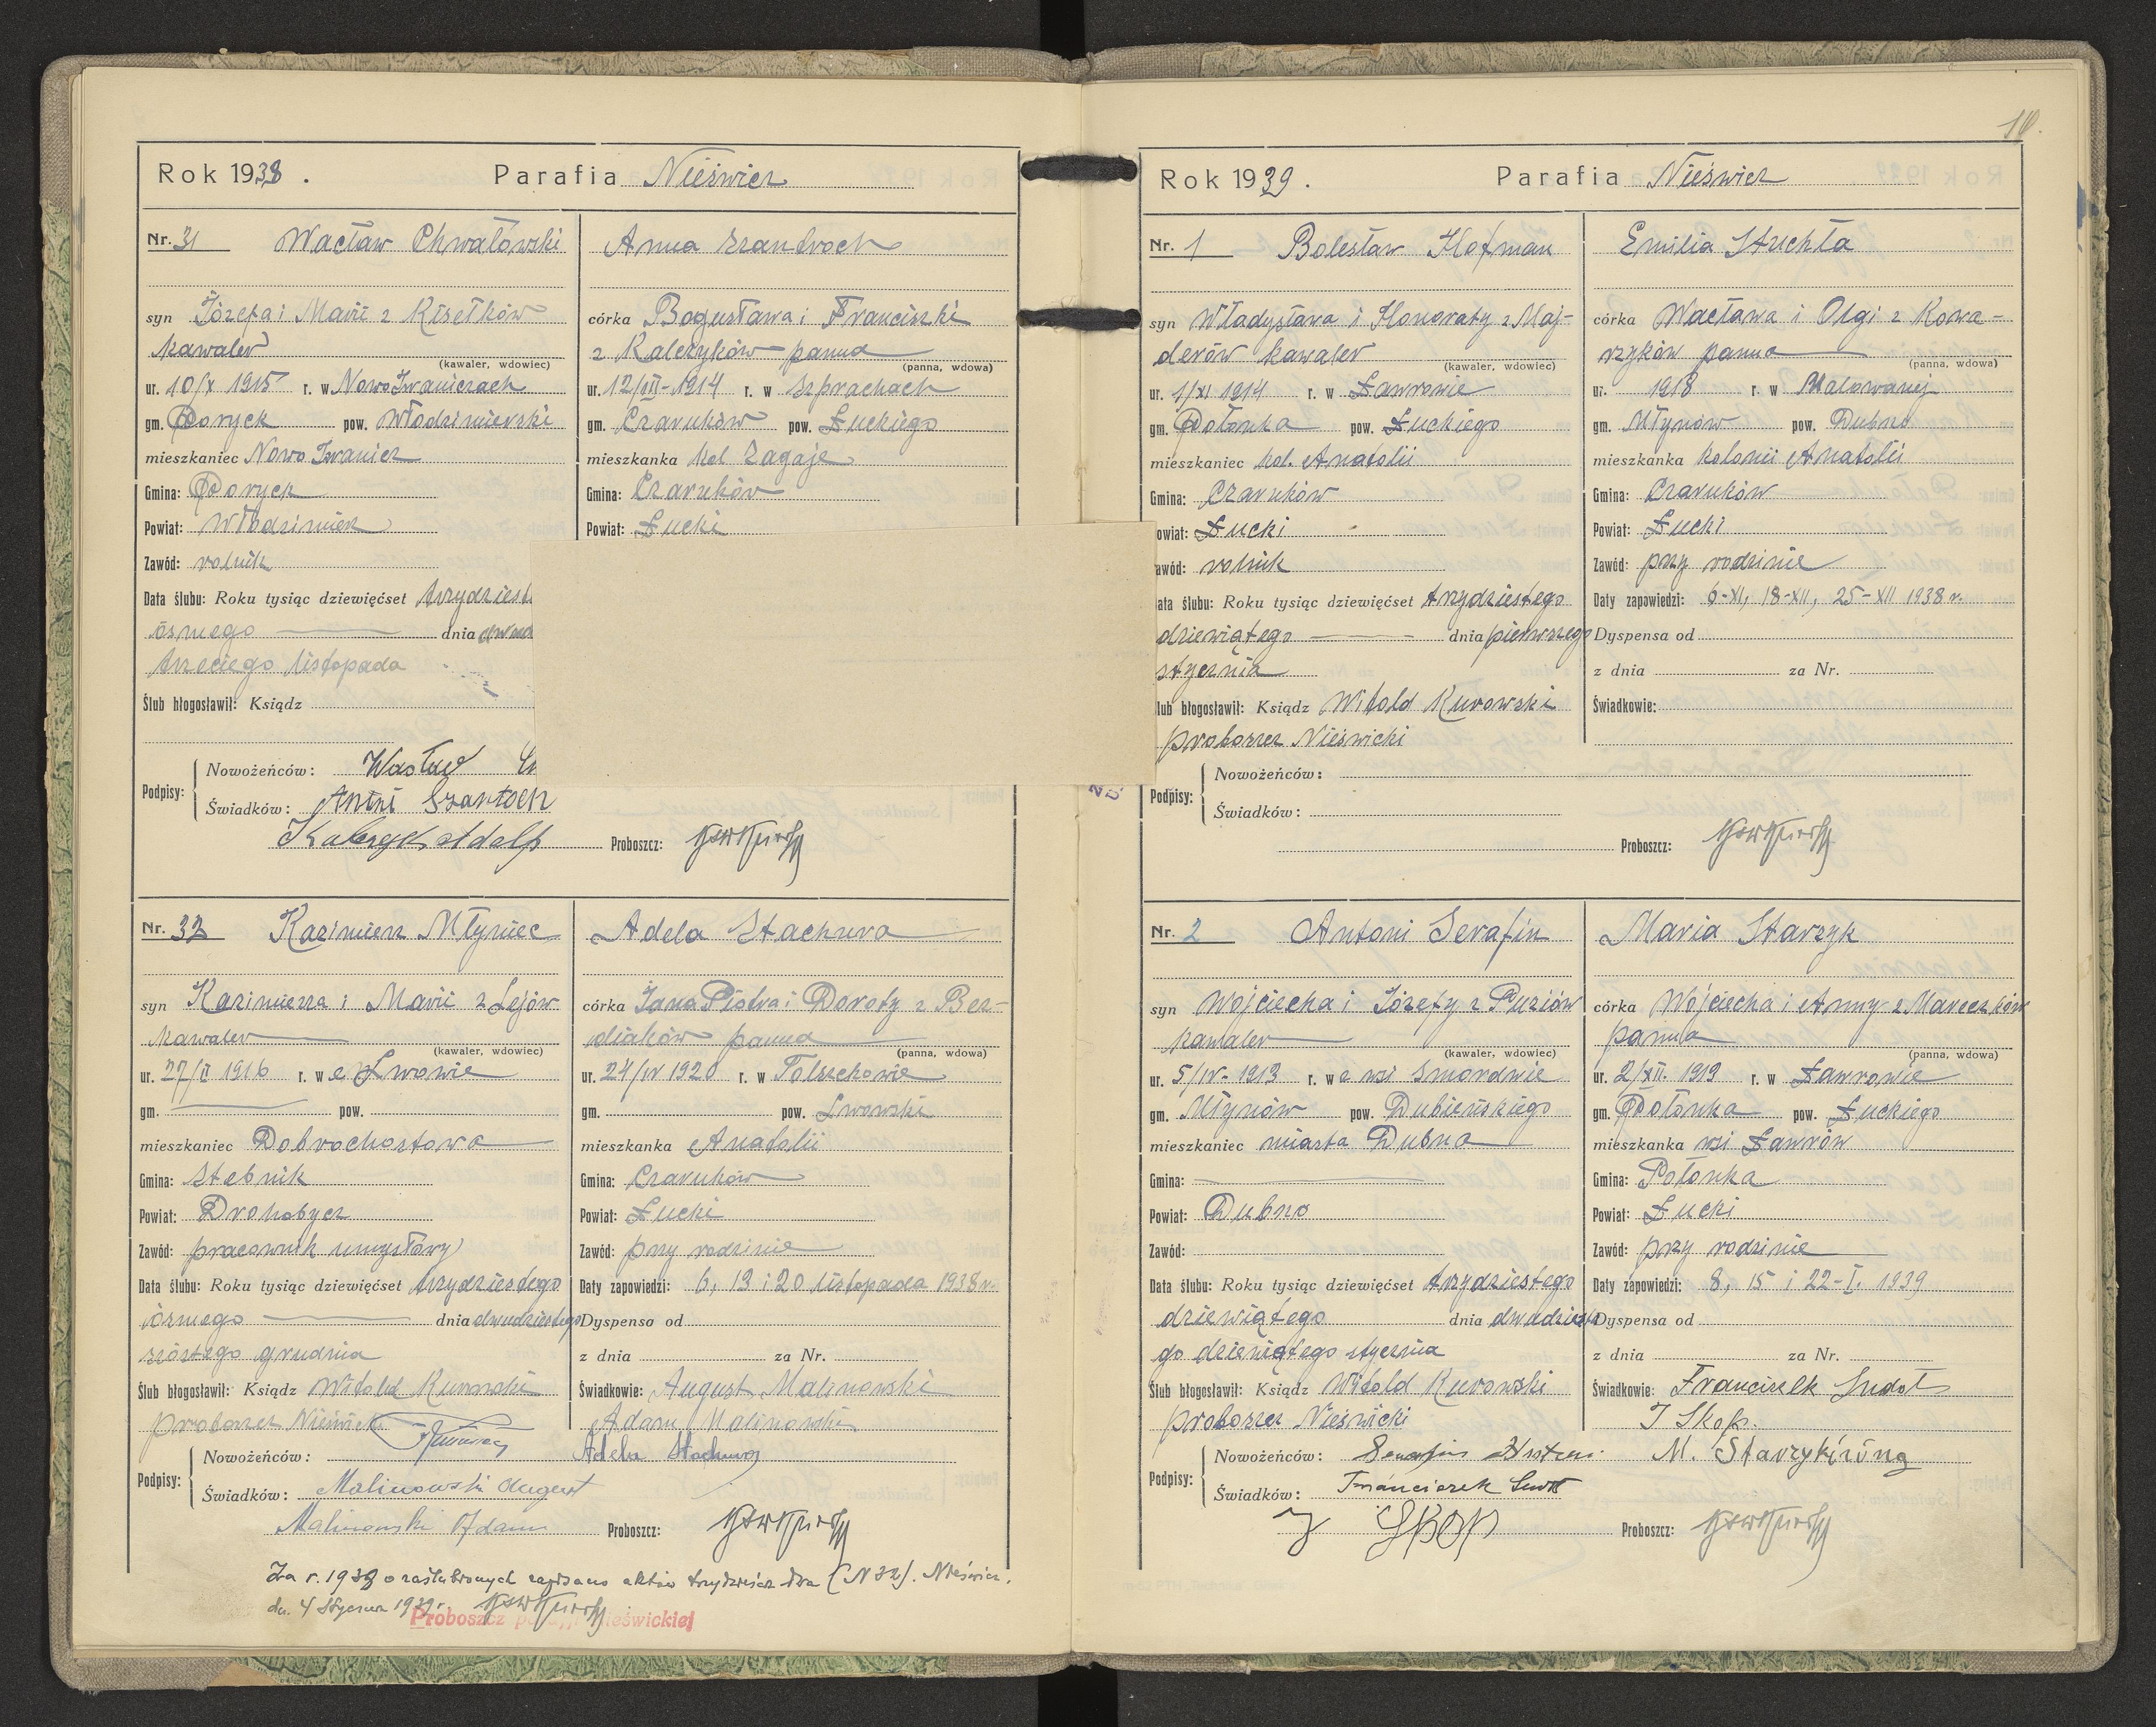 Rok 1938. Parafia Nieświcz
Nr. 31 Wacław Chwałowski
syn Józefa i Marii z Kisełków
kawaler
(kawaler, wdowiec)
ur. 10/X 1915 r. w Nowo Iwaniczach
gm. Poryck pow. Włodzimierski
mieszkaniec Nowo Iwanicz
Gmina: Poryck
Powiat: Włodzimierz
Zawód: rolnik
Data ślubu: Roku tysiąc dziewięćset
ósmego dnia
trzeciego listopada
Ślub błogosławił: Ksiądz
Anna Szandroch
córka Bogusława i Franciszki
z Kalczyków panna
(panna, wdowa)
ur. 12/III-1914 r. w Szprachach
gm. Czaruków pow. Łuckiego
mieszkanka kol Zagaje
Gmina: Czaruków
Powiat: Łucki
Podpisy: Nowożeńców: Wacław
Świadków: Antni
Adolf
Proboszcz:
Nr. 32 Kazimierz Młyniec
syn Kazimierza i Marii z Lejów
kawaler
(kawaler, wdowiec)
ur. 27/II 1916 r. we Lwowie
gm. pow.
mieszkaniec Dobrochostowa
Gmina: Stebnik
Powiat: Drohobycz
Zawód: pracownik umysłowy
Data ślubu: Roku tysiąc dziewięćset trzydziestego
ósmego dnia dwudziestego
szóstego grudnia
Ślub błogosławił: Ksiądz Witold Kurowski
proboszcz Nieświcki
Adela Stachura
córka Jana Piotra i Doroty z Ber-
diaków panna
(panna, wdowa)
ur. 24/IV 1920 r. w Tolszczowie
gm. pow. Lwowski
mieszkanka Anatolii
Gmina: Czaruków
Powiat: Łucki
Zawód: przy rodzinie
Daty zapowiedzi: 6, 13 i 20 listopada 1938 r.
Dyspensa od
z dnia za Nr.
Świadkowie: August Malinowski
Adam Malinowski
Podpisy: Nowożeńców: Adela Stachura
Świadków: Malinowski August
Malinowski Adam
Proboszcz:
Za r. 1938 o zaślubionych zapisano aktów trzydzieści dwa (N 32). Nieświcz,
dn. 4 stycznia 1939 r.
Proboszcz parafji Nieświckiej
10.
Rok 1939. Parafia Nieświcz
Nr. 1 Bolesław Hofman
syn Władysława i Honoraty z Maj-
derów kawaler
(kawaler, wdowiec)
ur. 1/XI 1914 r. w Ławrowie
gm. Połonka pow. Łuckiego
mieszkaniec kol. Anatolii
Gmina: Czaruków
owiat: Łucki
awód: rolnik
ata ślubu: Roku tysiąc dziewięćset trzydziestego
dziewiątego dnia pierwszego
stycznia
lub błogosławił: Ksiądz Witold Kurowski
proboszcz Nieświcki
Emilia Stuchła
córka Wacława i Olgi z Kowa-
rzyków panna
(panna, wdowa)
ur. 1918 r. w Malowanej
gm. Młynów pow. Dubno
mieszkanka kolonii Anatolii
Gmina: Czaruków
Powiat: Łucki
Zawód: przy rodzinie
Daty zapowiedzi: 6-XI, 18-XII, 25-XII 1938 r.
Dyspensa od
z dnia za Nr.
Świadkowie:
Podpisy: Nowożeńców:
Świadków:
Proboszcz:
Nr. 2 Antoni Serafin
syn Wojciecha i Józefy z Puziów
kawaler
(kawaler, wdowiec)
ur. 5/IV-1913 r. we wsi Smordwie
gm. Młynów pow. Dubieńskiego
mieszkaniec miasta Dubna
Gmina:
Powiat: Dubno
Zawód:
Data ślubu: Roku tysiąc dziewięćset trzydziestego
dziewiątego dnia dwudzieste
go dziewiątego stycznia
Ślub błogosławił: Ksiądz Witold Kurowski
proboszcz Nieświcki
Maria Starzyk
córka Wojciecha i Anny z Mareczków
panna
(panna, wdowa)
ur. 2/XII. 1919 r. w Ławrowie
gm. Połonka pow. Łuckiego
mieszkanka wsi Ławrów
Gmina: Połonka
Powiat: Łucki
Zawód: przy rodzinie
Daty zapowiedzi: 8, 15 i 22-I. 1939
Dyspensa od
z dnia za Nr.
Świadkowie: Franciszek Sudoł
J Skop.
Podpisy: Nowożeńców: Serafin Antoni M. Starzykówna
Świadków: Franciszek
J Skop
Proboszcz: